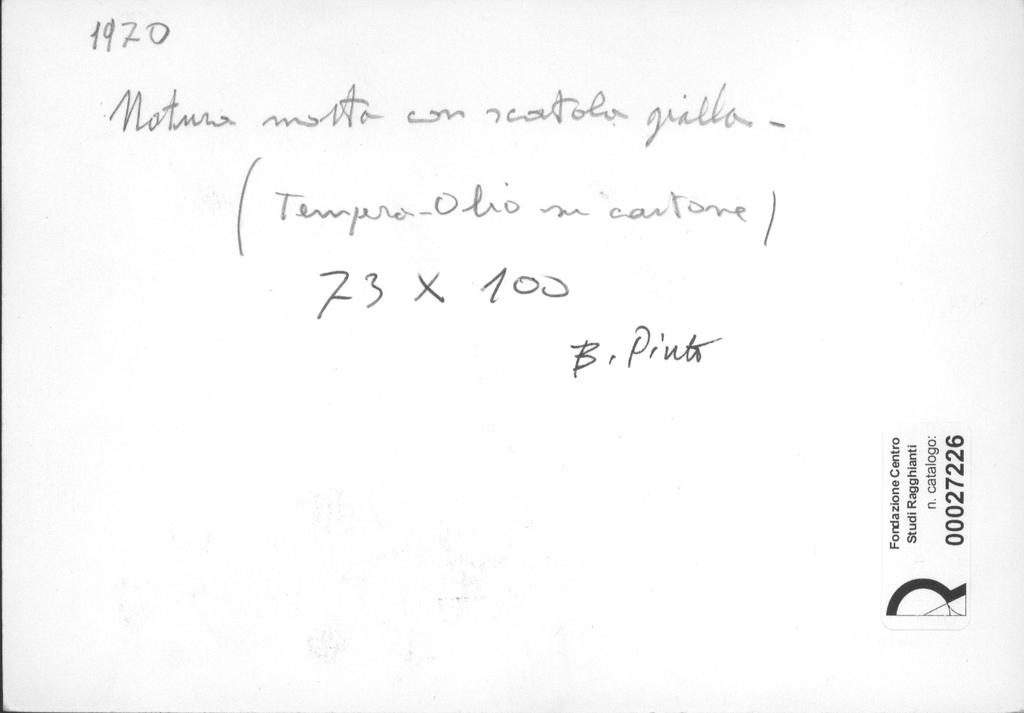 1970
Natura morta con scatola gialla -
(Tempera-Olio su cartone)
73 X 100
B. Pinto
Fondazione Centro
Studi Ragghianti
n. catalogo:
00027226